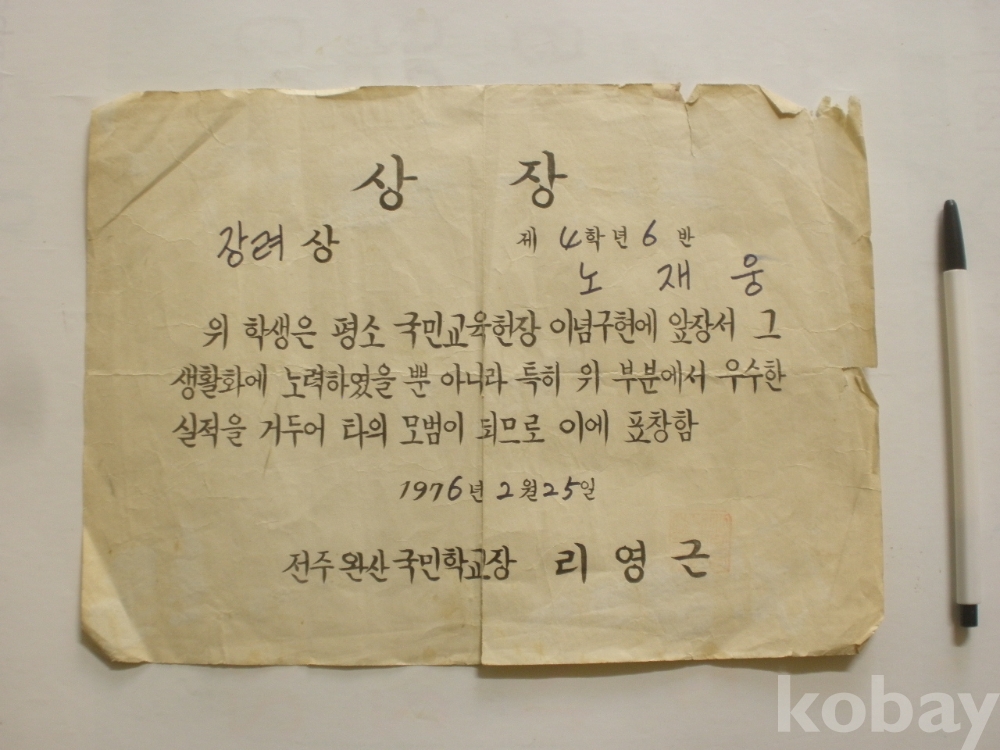 상 장
장려상
제 4학년 6 반
노 재 웅
위 학생은 평소 국민교육헌장 이념구현에 앞장서 그
생활화에 노력하였을 뿐 아니라 특히 위 부분에서 우수한
실적을 거두어 타의 모범이 되므로 이에 표창함
1976년 2월 25일
전주 완산 국민학교장 리 영 근
kobay